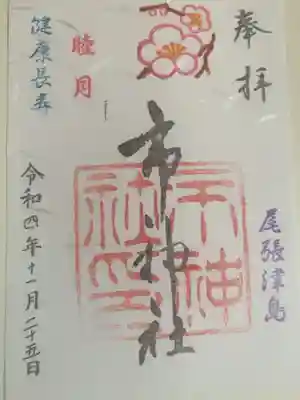 奉拝
尾張津島
市神社
睦月
健康長寿
令和四年十一月二十五日